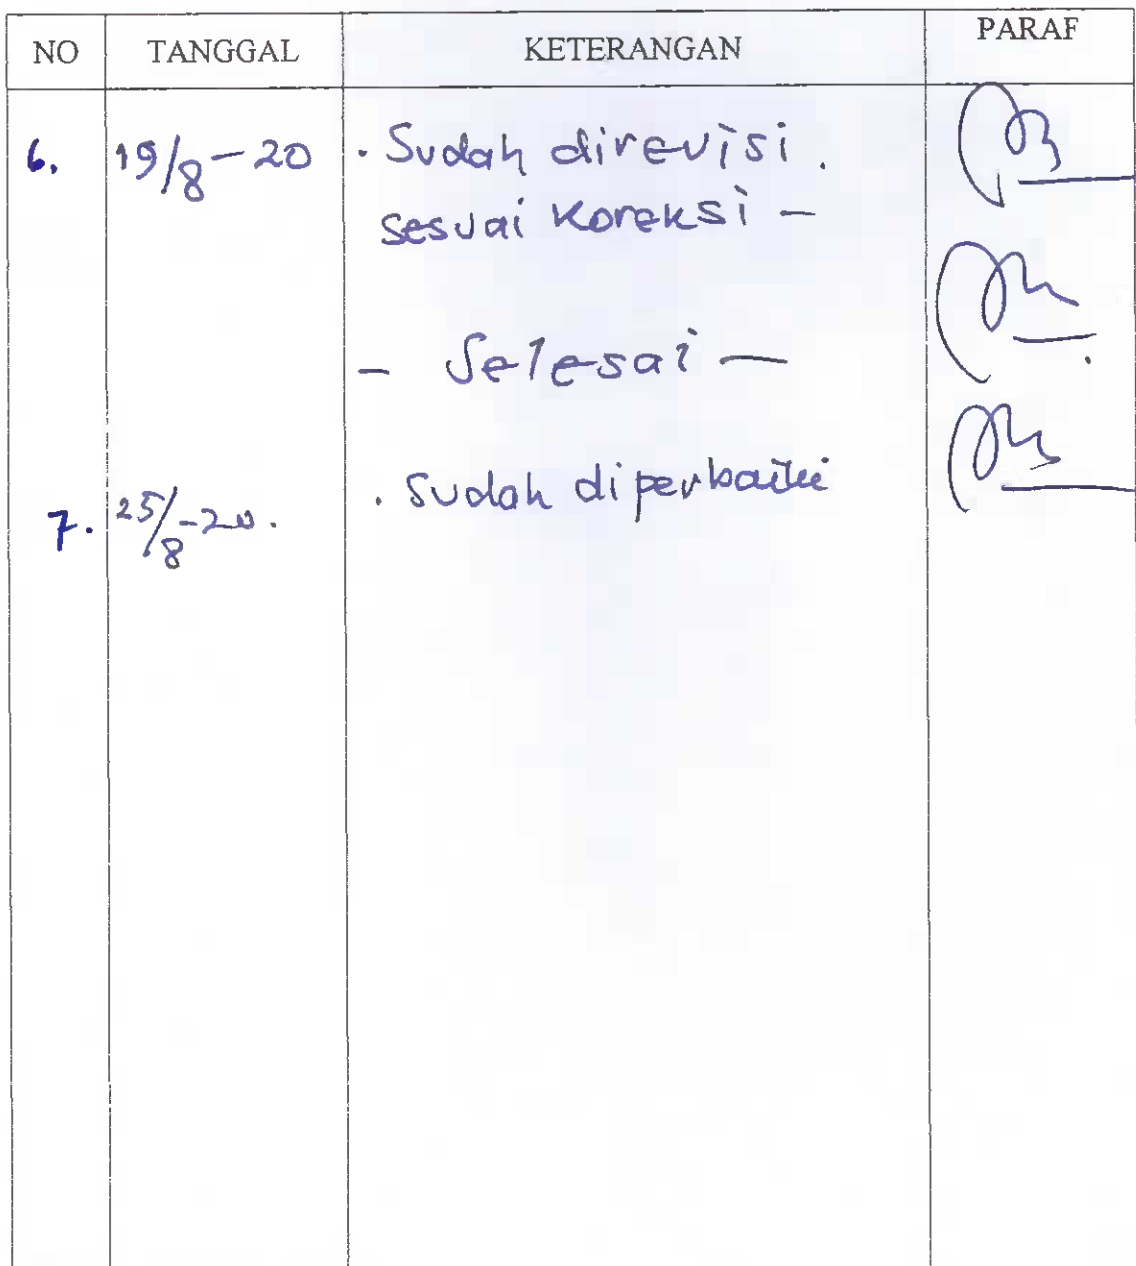 NO TANGGAL KETERANGAN PARAF
6. 19/8-20 . Sudah direvisi.
sesuai Koreksi -
- Selesai -
. Sudah diperbaiki
7. 25/8-20.